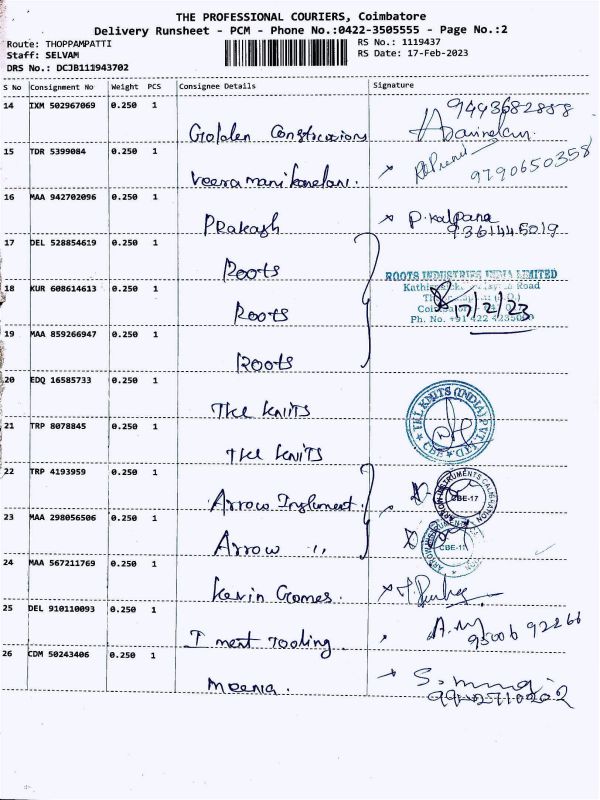 THE PROFESSIONAL COURIERS, Coimbatore
Delivery Runsheet - PCM - Phone No.:0422-3505555 - Page No.:2
Route: THOPPAMPATTI RS No.: 1119437
Staff: SELVAM RS Date: 17-Feb-2023
DRS No.: DCJB111943702
S No Consignment No Weight PCS Consignee Details Signature
14 IXM 502967069 0.250 1 9443682858
Golden Constructions
15 TDR 5399084 0.250 1
Veeramanikandan. 9790650358
16 MAA 942702096 0.250 1
Prakash P. Kalpana
9361445019
17 DEL 528854619 0.250 1
Roots ROOTS INDUSTRIES INDIA LIMITED
18 KUR 608614613 0.250 1 Road
Roots 17/2/23
Ph. No. +91 422
19 MAA 859266947 0.250 1
Roots
20 EDQ 16585733 0.250 1
TKL KNITS TKL KNITS (INDIA) PVT. LTD CBE
21 TRP 8078845 0.250 1
TKL KNITS
22 TRP 4193959 0.250 1
Arrow Instrument. INSTRUMENTS CALIBRATION CBE-17
23 MAA 298056506 0.250 1
Arrow ,,
24 MAA 567211769 0.250 1
Kevin Gomes.
25 DEL 910110093 0.250 1
I ment Tooling. 95006 92266
26 CDM 50243406 0.250 1
Meena.